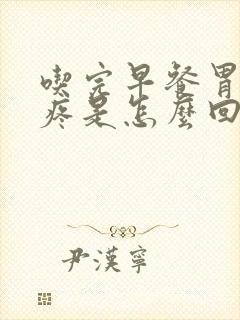 喫完早餐胃
疼是怎麼回
尹漢寧